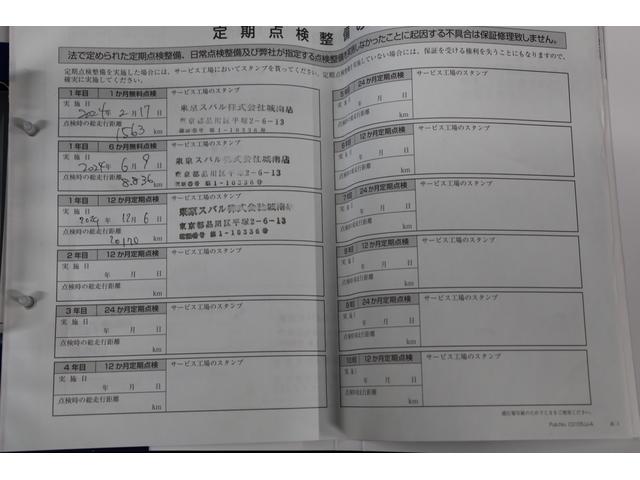 定期点検整備の
法で定められた定期点検整備、日常点検整備及び弊社が指定する点検整備を実施しなかったことに起因する不具合は保証修理致しません。
定期点検整備を実施した場合には、サービス工場においてスタンプを貰ってください。定期点検整備を実施していない場合には、保証を受ける権利を失うことにもなりますので、
確実に実施してください。
1年目 1か月無料点検 サービス工場のスタンプ
実施日
2024年2月17日
点検時の総走行距離
1563 km
東京スバル株式会社城南店
東京都品川区平塚2-6-13
1年目 6か月無料点検 サービス工場のスタンプ
実施日
2024年6月9日
点検時の総走行距離
8836 km
東京スバル株式会社城南店
東京都品川区平塚2-6-13
認証番号 第1-10336号
1年目 12か月定期点検 サービス工場のスタンプ
実施日
2024年12月6日
点検時の総走行距離
20170 km
東京スバル株式会社城南店
東京都品川区平塚2-6-13
認証番号 第1-10336号
2年目 12か月定期点検 サービス工場のスタンプ
実施日
年 月 日
点検時の総走行距離
km
3年目 24か月定期点検 サービス工場のスタンプ
実施日
年 月 日
点検時の総走行距離
km
4年目 12か月定期点検 サービス工場のスタンプ
実施日
年 月 日
点検時の総走行距離
km
24か月定期点検 サービス工場のスタンプ
年 月 日
km
12か月定期点検 サービス工場のスタンプ
年 月 日
km
24か月定期点検 サービス工場のスタンプ
年 月 日
km
12か月定期点検 サービス工場のスタンプ
年 月 日
km
24か月定期点検 サービス工場のスタンプ
年 月 日
km
12か月定期点検 サービス工場のスタンプ
年 月 日
km